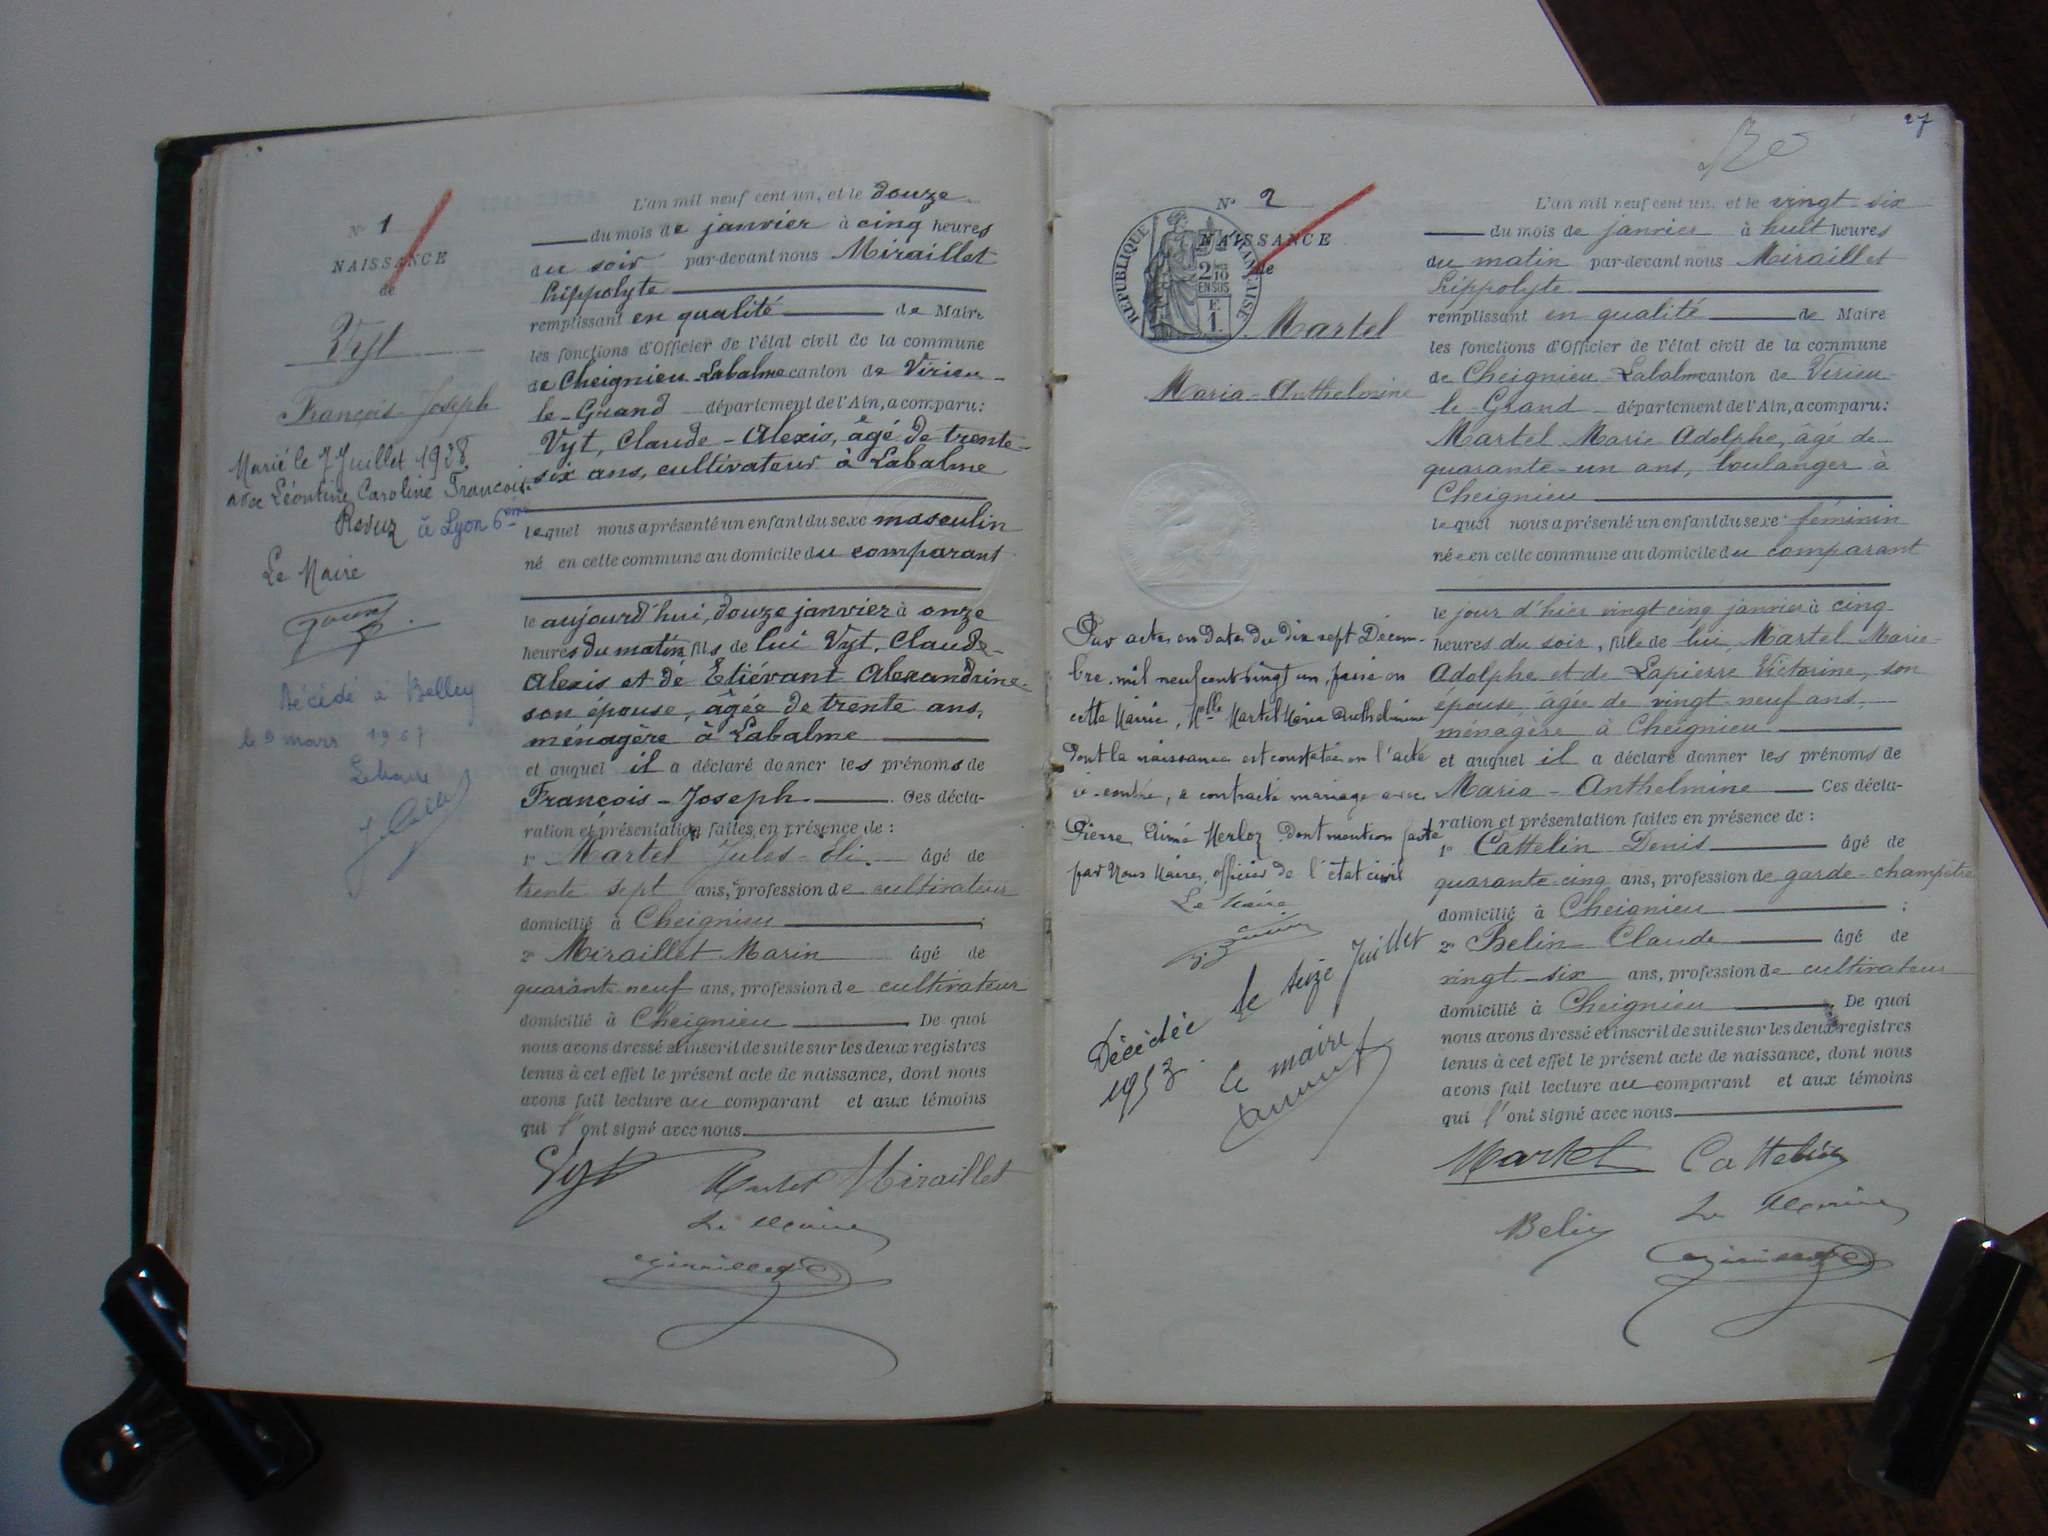 N° 1
NAISSANCE
de
Vyt
François-Joseph
Marié le 7 Juillet 1928
avec Léontine Caroline François
Revuz à Lyon 6ème
Le Maire
Décédé à Belley
le 9 mars 19
Le Maire
L'an mil neuf cent un, et le douze
du mois de janvier à cinq heures
du soir par-devant nous Miraillet
Hippolyte
remplissant en qualité de Maire
les fonctions d'Officier de l'état civil de la commune
de Cheignieu-Labalme canton de Virieu-
le-Grand département de l'Ain, a comparu:
Vyt, Claude-Alexis, âgé de trente-
six ans, cultivateur à Labalme
lequel nous a présenté un enfant du sexe masculin
né en cette commune au domicile du comparant
le aujourd'hui, douze janvier à onze
heures du matin fils de lui Vyt, Claude-
Alexis et de Etiévant Alexandrine
son épouse, âgée de trente ans,
ménagère à Labalme
et auquel il a déclaré donner les prénoms de
François-Joseph. Ces décla-
ration et présentation faites en présence de :
1° Martel Jules-Eli. âgé de
trente sept ans, profession de cultivateur
domicilié à Cheignieu ;
2° Miraillet Marin âgé de
quarante neuf ans, profession de cultivateur
domicilié à Cheignieu De quoi
nous avons dressé et inscrit de suite sur les deux registres
tenus à cet effet le présent acte de naissance, dont nous
avons fait lecture au comparant et aux témoins
qui l'ont signé avec nous
Vyt Martel Miraillet
Le Maire
Miraillet
27
N° 2
NAISSANCE
de
RÉPUBLIQUE FRANÇAISE
2/10 EN SUS
F. 1.
Martel
Maria-Anthelmine
Par acte en date du dix sept Décem-
bre mil neuf cent vingt un, passé en
cette Mairie, Melle Martel Maria Anthelmine
dont la naissance est constatée en l'acte
ci-contre, a contracté mariage avec
Pierre Aimé Herloz dont mention faite
par Nous Maire, officier de l'état civil
Le Maire
Décédée le seize Juillet
1953.
Le maire
L'an mil neuf cent un, et le vingt-six
du mois de janvier à huit heures
du matin par-devant nous Miraillet
Hippolyte
remplissant en qualité de Maire
les fonctions d'Officier de l'état civil de la commune
de Cheignieu-Labalme canton de Virieu-
le-Grand département de l'Ain, a comparu:
Martel Marie Adolphe, âgé de
quarante-un ans, boulanger à
Cheignieu
lequel nous a présenté un enfant du sexe féminin
née en cette commune au domicile du comparant
le jour d'hier vingt cinq janvier à cinq
heures du soir, fille de lui, Martel Marie-
Adolphe et de Lapierre Victorine, son
épouse, âgée de vingt-neuf ans,
ménagère à Cheignieu
et auquel il a déclaré donner les prénoms de
Maria-Anthelmine Ces décla-
ration et présentation faites en présence de :
1° Cattelin Denis âgé de
quarante-cinq ans, profession de garde-champêtre
domicilié à Cheignieu ;
2° Belin Claude âgé de
vingt-six ans, profession de cultivateur
domicilié à Cheignieu De quoi
nous avons dressé et inscrit de suite sur les deux registres
tenus à cet effet le présent acte de naissance, dont nous
avons fait lecture au comparant et aux témoins
qui l'ont signé avec nous
Martel Cattelin
Belin Le Maire
Miraillet